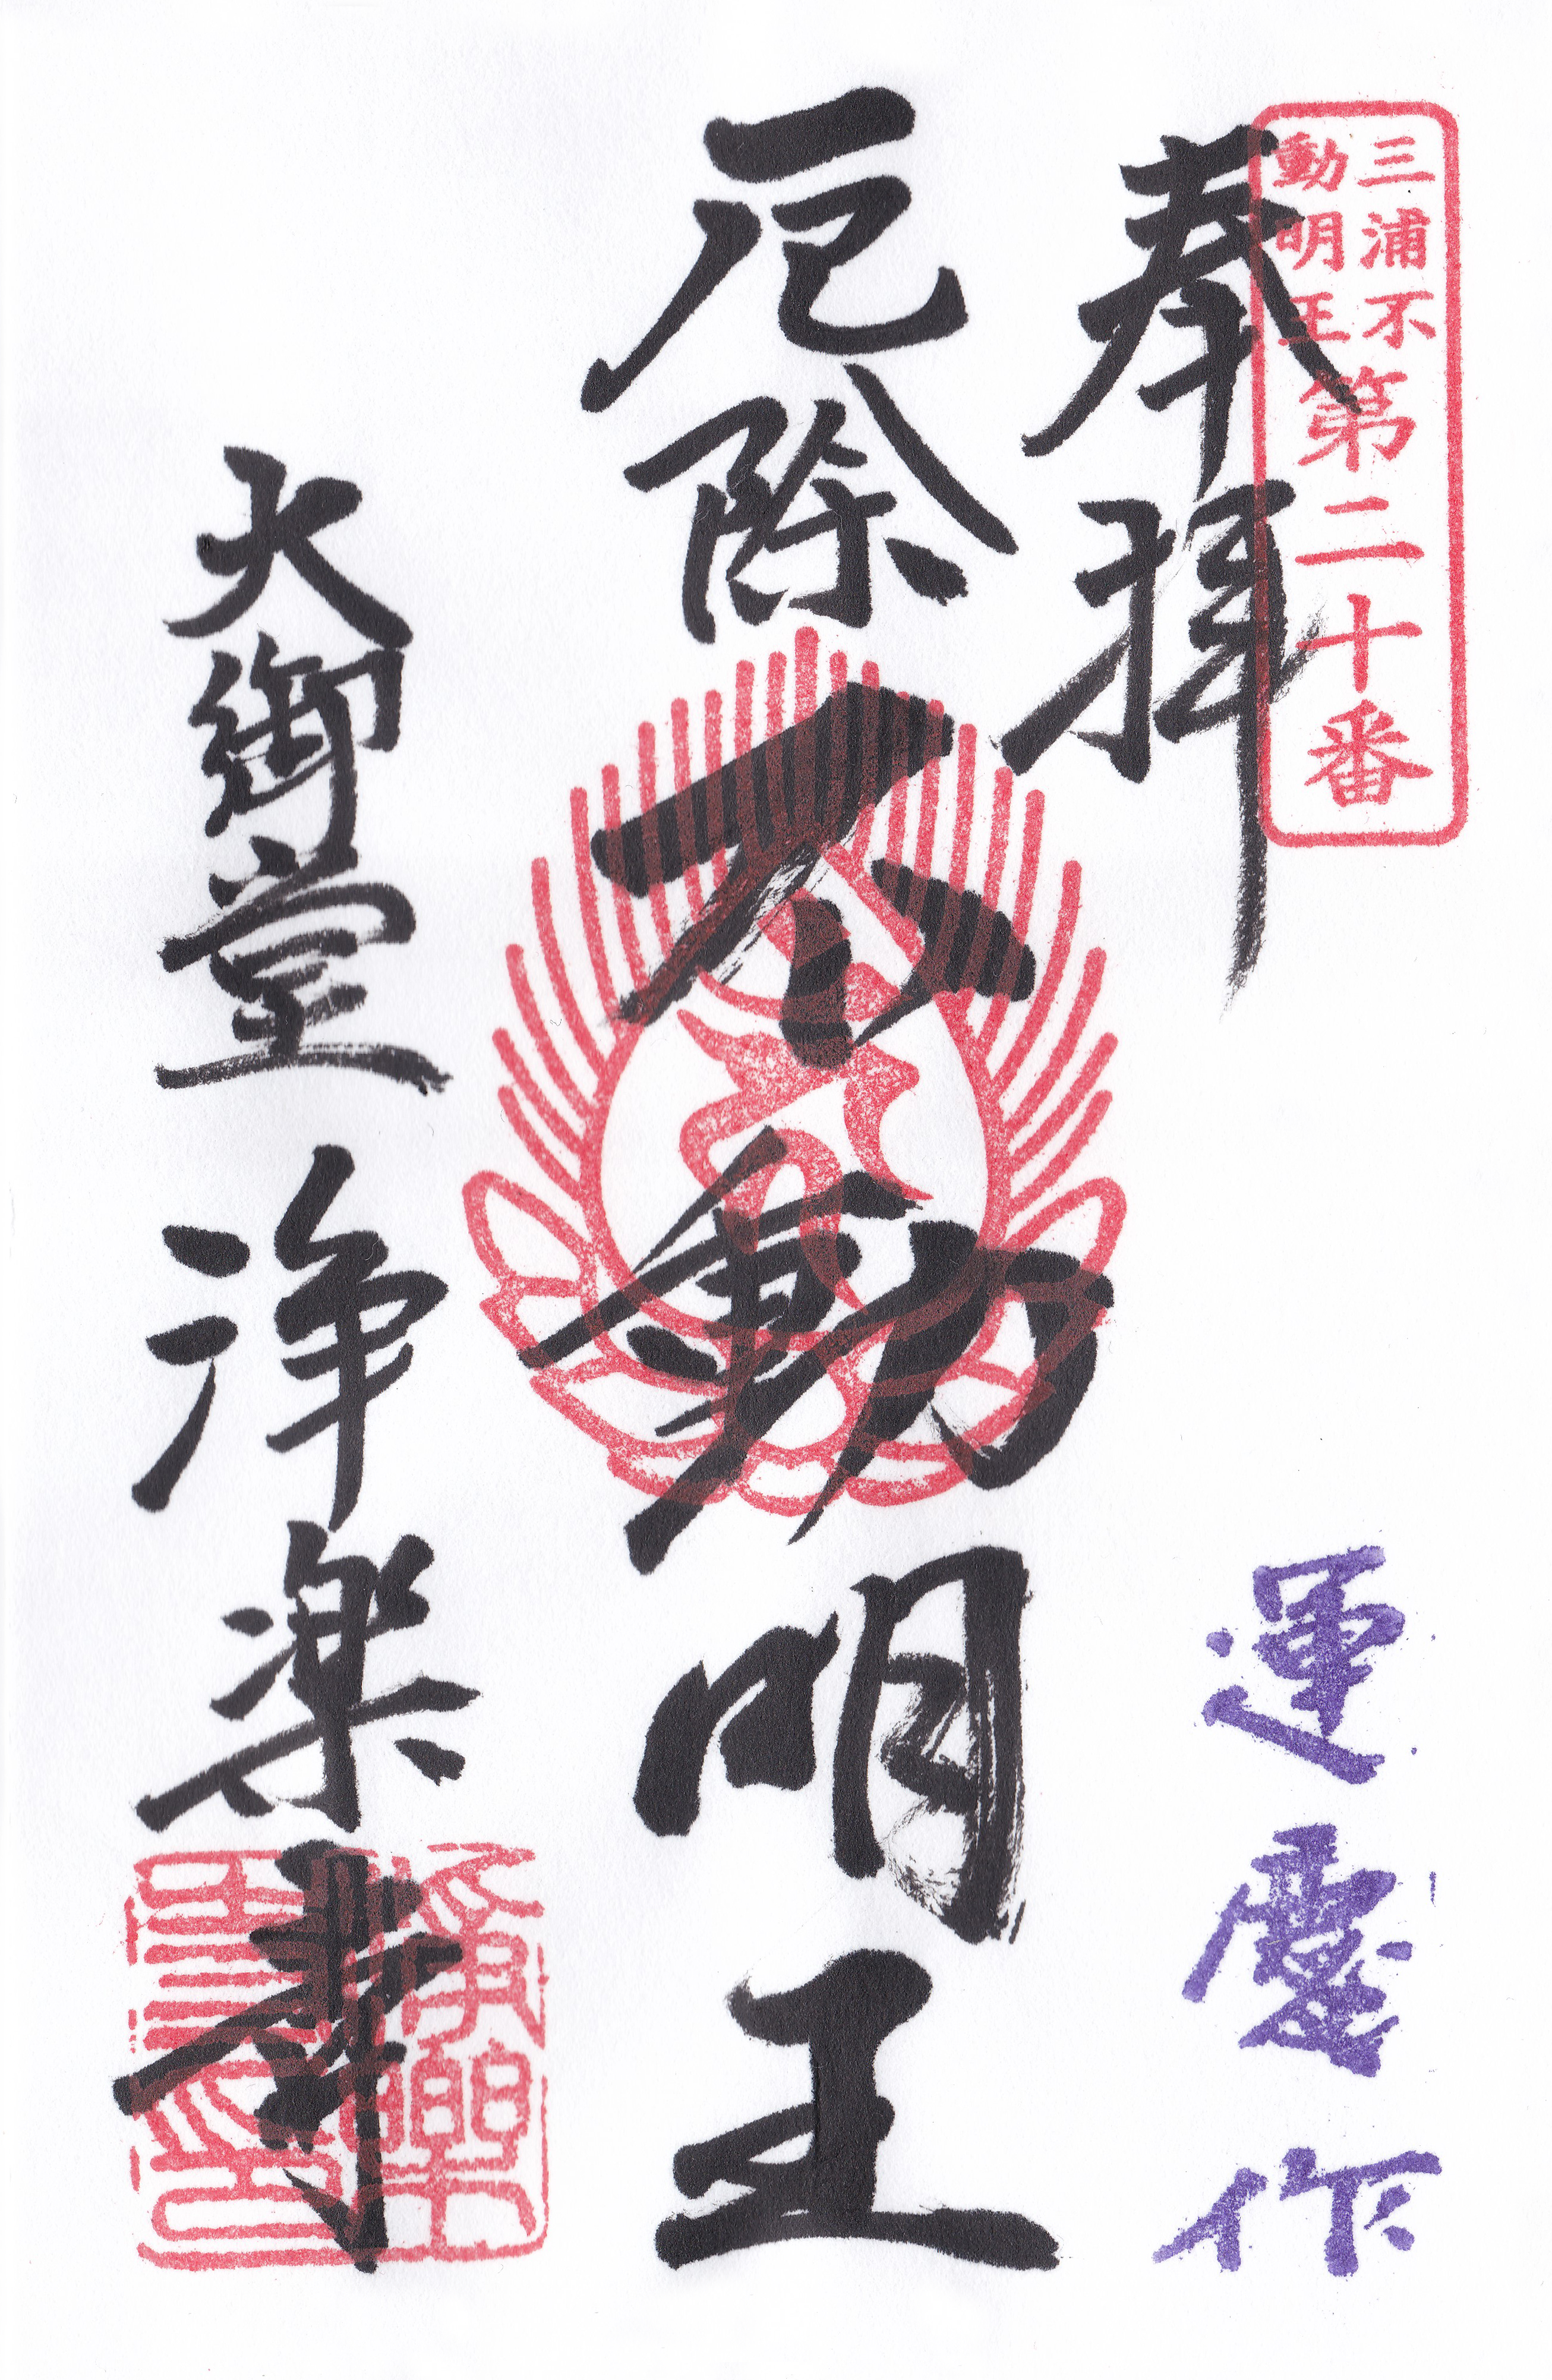 三浦不
動明王
第二十番
奉拝
運慶作
厄除
不動明王
大御堂
浄楽寺